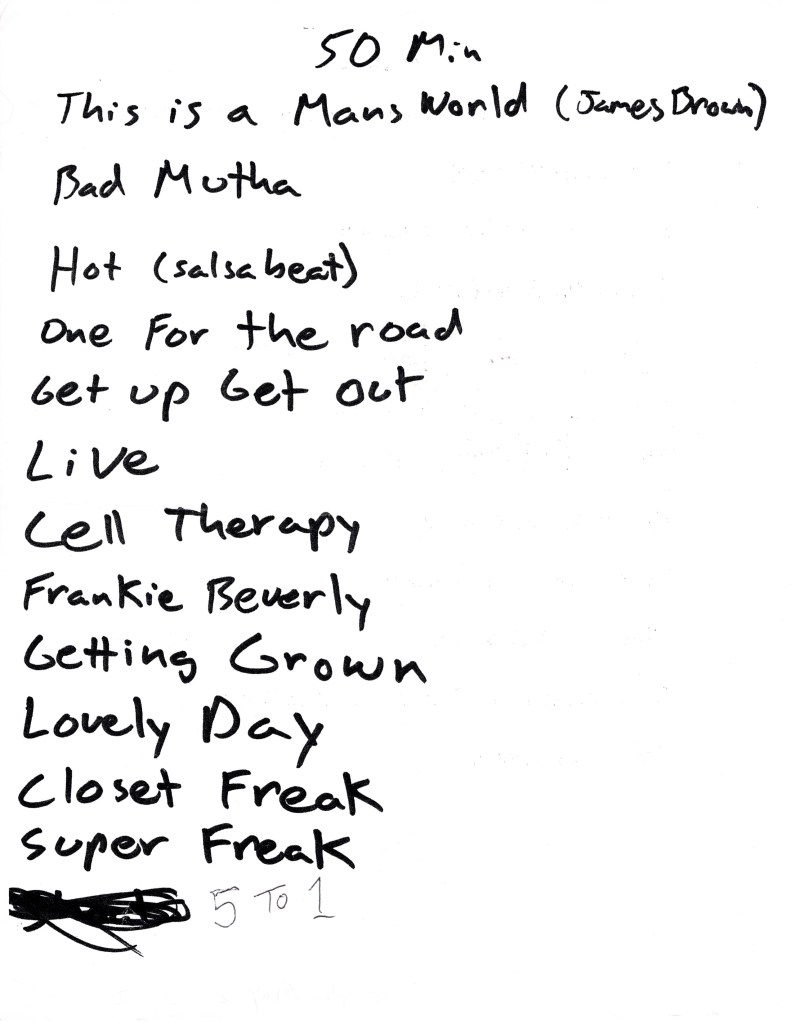 50 Min
This is a Mans World (James Brown)
Bad Mutha
Hot (salsa beat)
One For the road
Get up Get out
Live
Cell Therapy
Frankie Beverly
Getting Grown
Lovely Day
Closet Freak
Super Freak
5 To 1